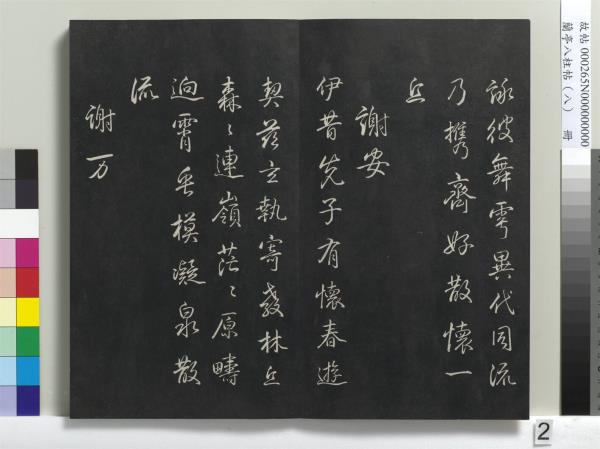 故帖 000265N000000000
蘭亭八柱帖（八） 冊
詠彼舞雩異代同流
乃携齊好散懷一
丘
謝安
伊昔先子有懷春遊
契茲言執寄敖林丘
森〻連嶺茫〻原疇
逈霄垂模凝泉散
流
謝万
2